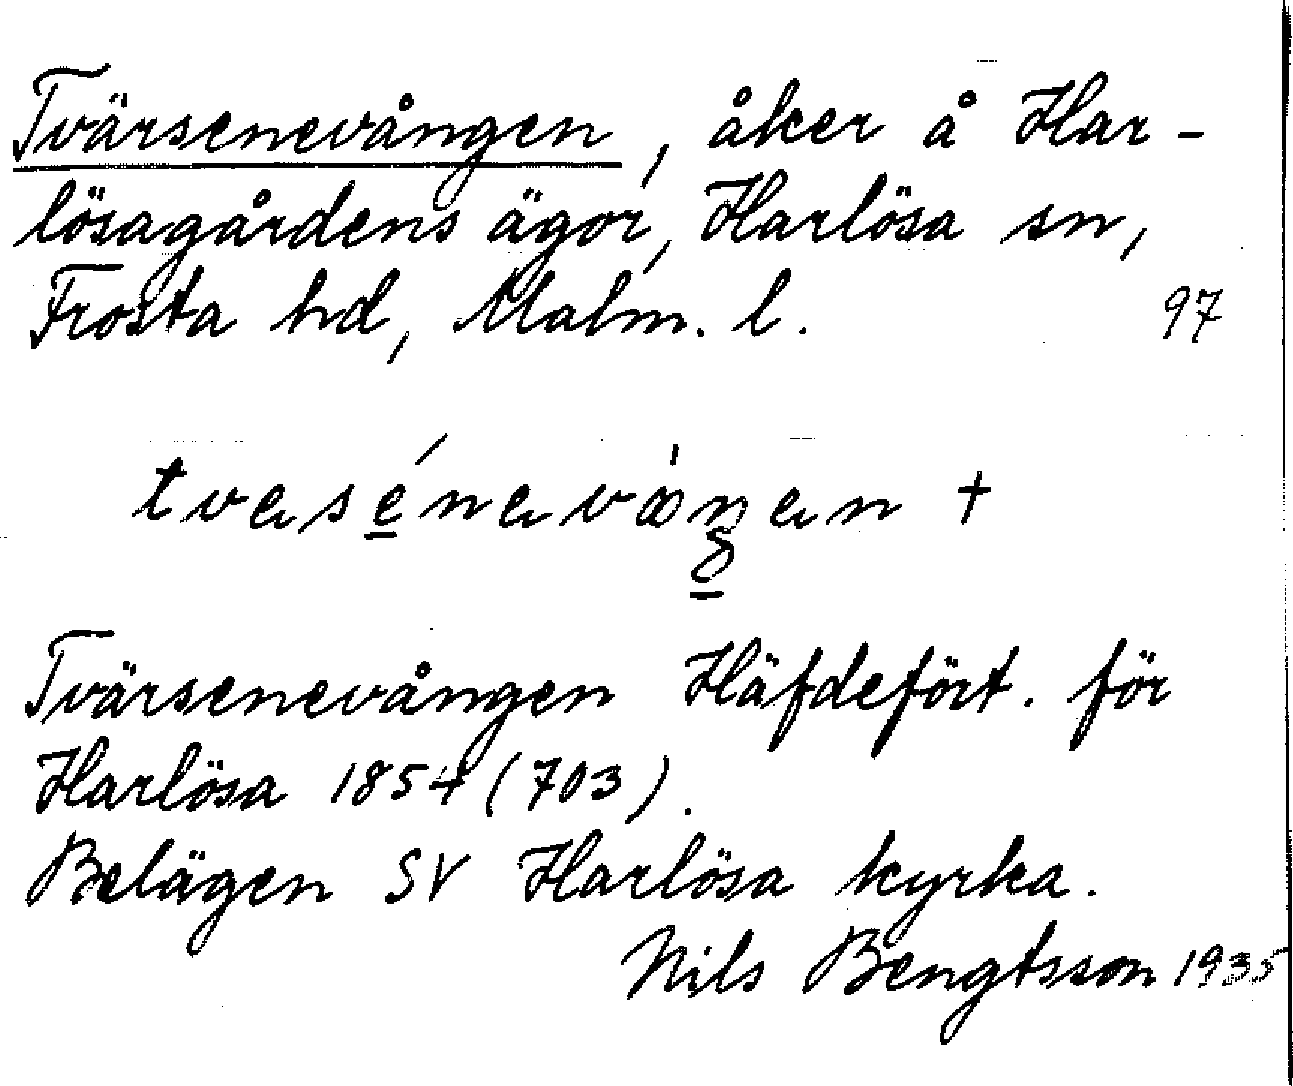 Tvärsenevången, åker å Har-
lösagårdens ägor, Harlösa sn,
Frosta hd, Malm. l. 97
Tvärsenevången Häfdefört. för
Harlösa 1854 (703).
Belägen SV Harlösa kyrka.
Nils Bengtsson 1935